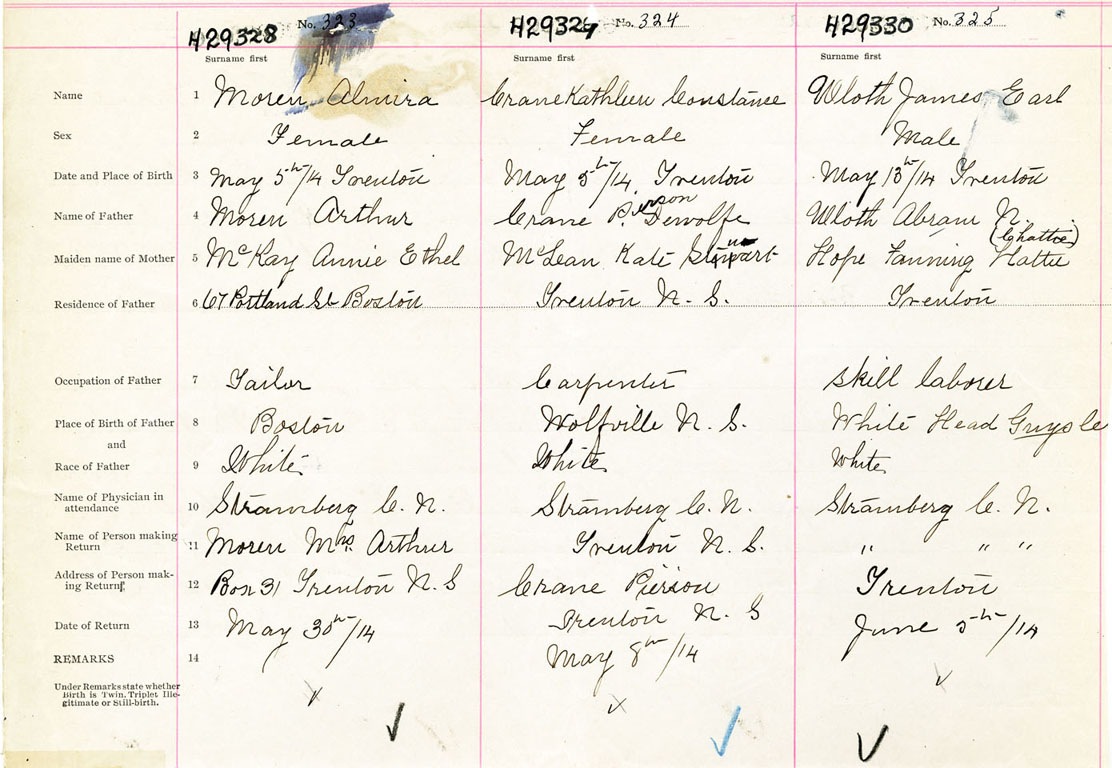 429328 No. 323 42932 No. 324 429330 No. 325
Surname first Surname first Surname first
Name 1 Moren Almira Crane Kathleen Constance Wloth James Earl
Sex 2 Female Female Male
Date and Place of Birth 3 May 5th/14 Trenton May 5th/14 Trenton May 13th/14 Trenton
Name of Father 4 Moren Arthur Crane Pierson Dewolfe Wloth Abram N.
Maiden name of Mother 5 McKay Annie Ethel McLean Kate Hope Fanning Hattie (Chattie)
Residence of Father 6 67 Portland St Boston Trenton N. S. Trenton
Occupation of Father 7 Tailor Carpenter skill laborer
Place of Birth of Father 8 Boston Wolfville N. S. White Head Guys Co
and
Race of Father 9 White White White
Name of Physician in
attendance 10 Stramberg C. N. Stramberg C. N. Stramberg C. N.
Name of Person making
Return 11 Moren Mrs. Arthur Trenton N. S. " " "
Address of Person mak-
ing Return 12 Box 31 Trenton N. S Crane Pierson Trenton
Date of Return 13 May 30th/14 Trenton N. S June 5th/14
REMARKS 14 May 8th/14
Under Remarks state whether
Birth is Twin, Triplet Ille-
gitimate or Still-birth.